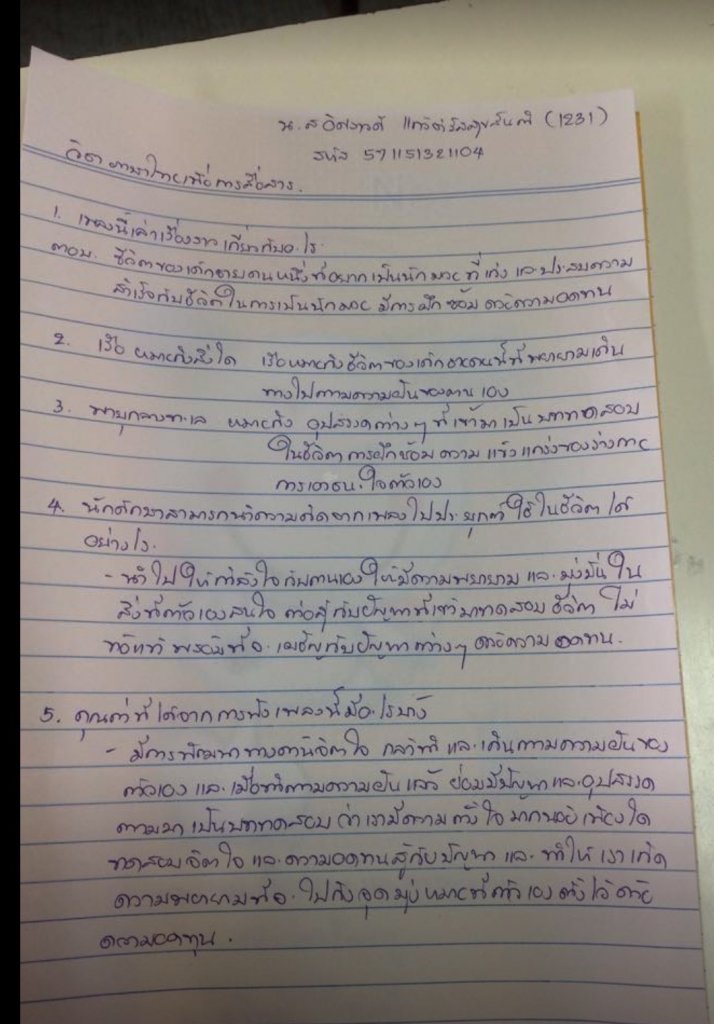 น.ส (1231)
รหัส 571151321104
วิชา ภาษาไทยเพื่อการสื่อสาร.
1. เพลงนี้เล่าเรื่องราวเกี่ยวกับอะไร
ตอบ. ชีวิตของเด็กชายคนหนึ่งที่อยากเป็นนักมวย ที่เก่ง และประสบความ
สำเร็จกับชีวิตในการเป็นนักมวย มีการฝึกซ้อม ด้วยความอดทน
2. เรือ หมายถึงสิ่งใด เรือหมายถึงชีวิตของเด็กชายคนนี้ที่พยายามเดิน
ทางไปตามความฝันของตนเอง
3. พายุกลางทะเล หมายถึง อุปสรรคต่างๆ ที่เข้ามาเป็นบททดสอบ
ในชีวิต การฝึกซ้อม ความแข็งแกร่งของร่างกาย
การเอาชนะใจตัวเอง
4. นักศึกษาสามารถนำความคิดจากเพลงไปประยุกต์ใช้ในชีวิตได้
อย่างไร.
- นำไปให้กำลังใจกับตนเองให้มีความพยายาม และมุ่งมั่นใน
สิ่งที่ตัวเองสนใจ ต่อสู้กับปัญหาที่เข้ามาทดสอบชีวิต ไม่
ท้อแท้ พร้อมที่จะเผชิญกับปัญหาต่างๆ ด้วยความอดทน.
5. คุณค่าที่ได้จากการฟังเพลงนี้มีอะไรบ้าง
- มีการพัฒนาทางด้านจิตใจ กล้าที่และเดินตามความฝันของ
ตัวเอง และเมื่อทำตามความฝันแล้ว ย่อมมีปัญหาและอุปสรรค
ตามมาเป็นบททดสอบว่าเรามีความตั้งใจมากน้อยเพียงใด
ทดสอบจิตใจ และความอดทนสู้กับปัญหา และทำให้เราเกิด
ความพยายามที่จะไปถึงจุดมุ่งหมายที่ตัวเองตั้งไว้ด้วย
ความอดทน.